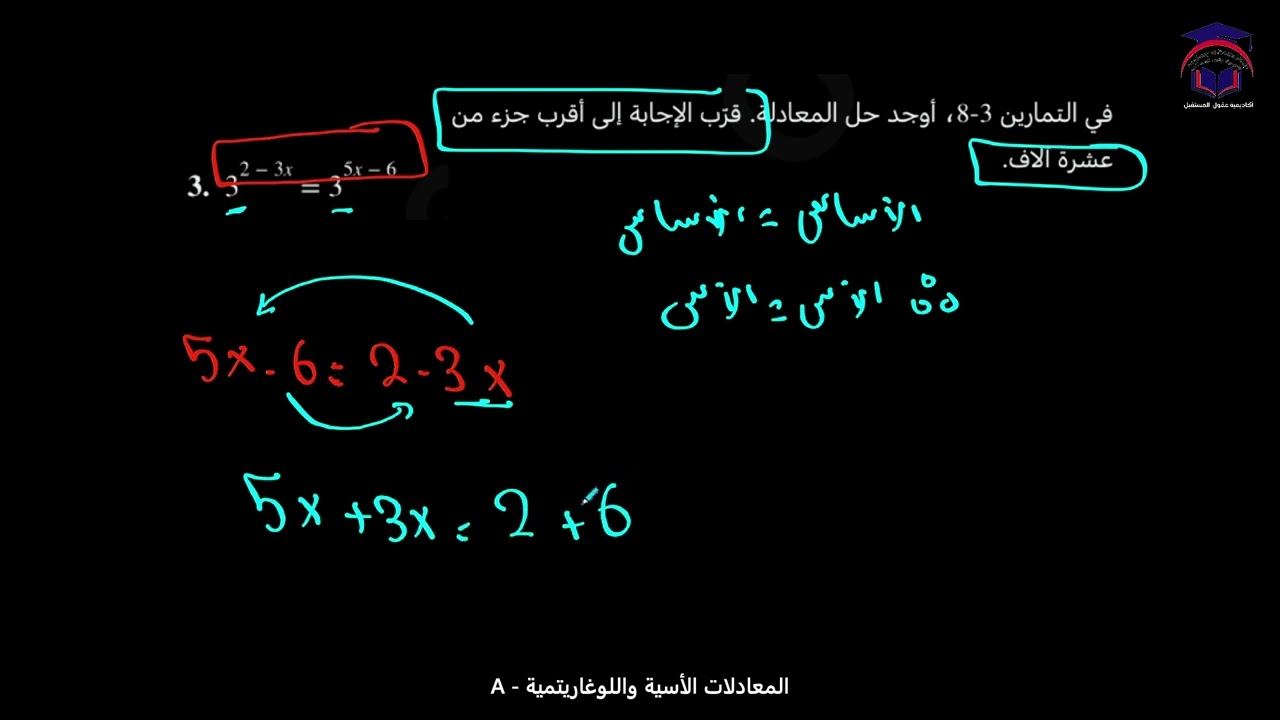 في التمارين 3-8، أوجد حل المعادلة. قرّب الإجابة إلى أقرب جزء من
عشرة الاف.
3. 3^{2 – 3x} = 3^{5x – 6}
الأساس = الأساس
∴ الأس = الأس
5x - 6 = 2 - 3x
5x + 3x = 2 + 6
المعادلات الأسية واللوغاريتمية - A
أكاديمية عقول المستقبل